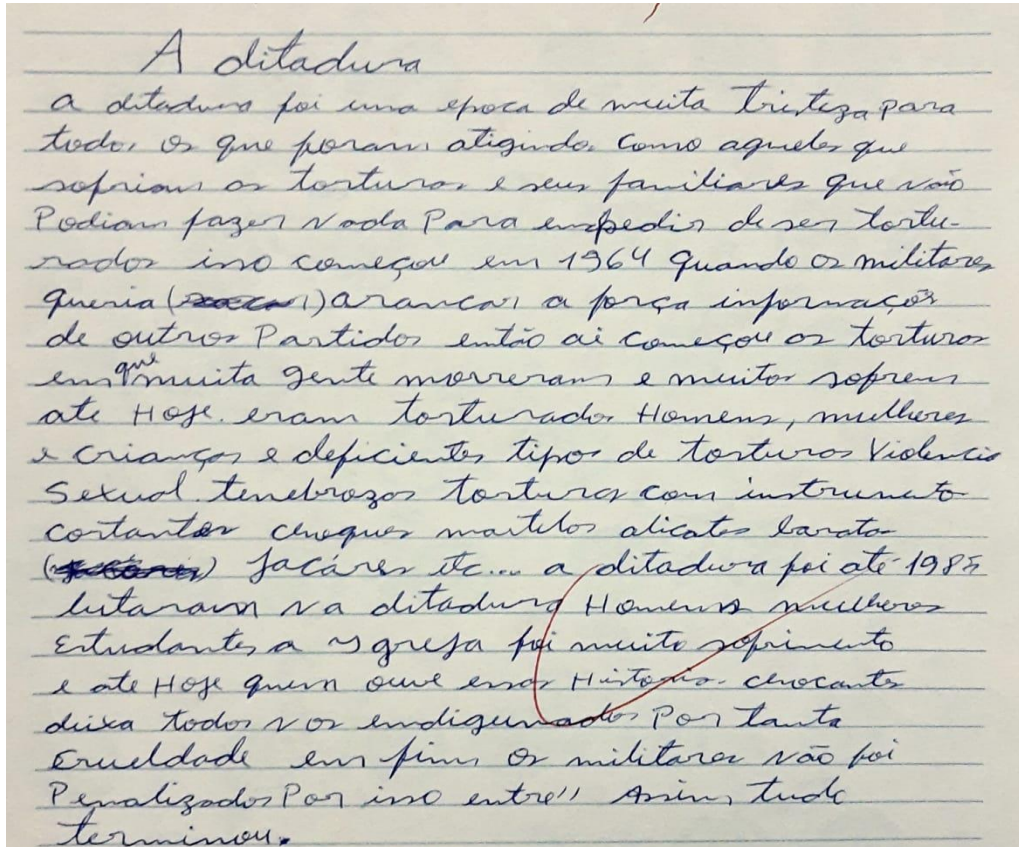 A ditadura
a ditadura foi uma epoca de muita tristeza para
todos os que foram atigindos como aqueles que
sofriam as torturas e seus familiares que não
Podiam fazer nada Para empedir de ser tortu-
rados isso começou em 1964 quando os militares
queria ( ) arancar a força informações
de outros Partidos então ai começou as torturas
em que muita gente morreram e muitos sofrem
ate Hoje. eram torturados Homens, mulheres
e crianças e deficientes tipos de torturas Violencia
Sexual. tenebrozos torturas com instrumento
cortantes choques martelos alicates baratas
( ) Jacáres etc... a ditadura foi até 1985
lutaram na ditadura Homens mulheres
Estudantes a Igreja foi muito sofrimento
e ate Hoje quem ouve essas Historia. chocantes
deixa todos nos endiguinados Por tanta
Crueldade em fim os militares não foi
Penalizados Por isso entre'' Assim tudo
terminou.